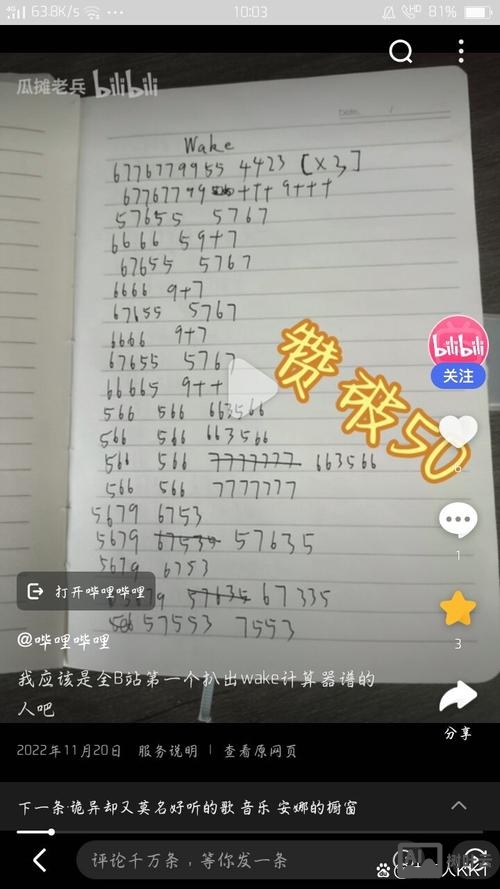 63.8K/s
10:03
HD
81%
瓜摊老兵 bilibili
Date. /
Wake
6776779955 4423 [×3]
67767799 +++ 9+++
57655 5767
6666 59+7
67655 5767
6666 9+7
67655 5767
6666 9+7
67655 5767
66665 9++
566 566 663566
566 566 663566
566 566 7777777 663566
566 566 7777777
5679 6753
5679 67535 57635
5679 6753
57635 67335
57553 7553
赞破50
bilibili
关注
6
1
3
分享
打开哔哩哔哩
@哔哩哔哩
我应该是全B站第一个扒出wake计算器谱的
人吧
2022年11月20日 服务说明 | 查看原网页
下一条·诡异却又莫名好听的歌 音乐 安娜的橱窗
评论千万条，等你发一条